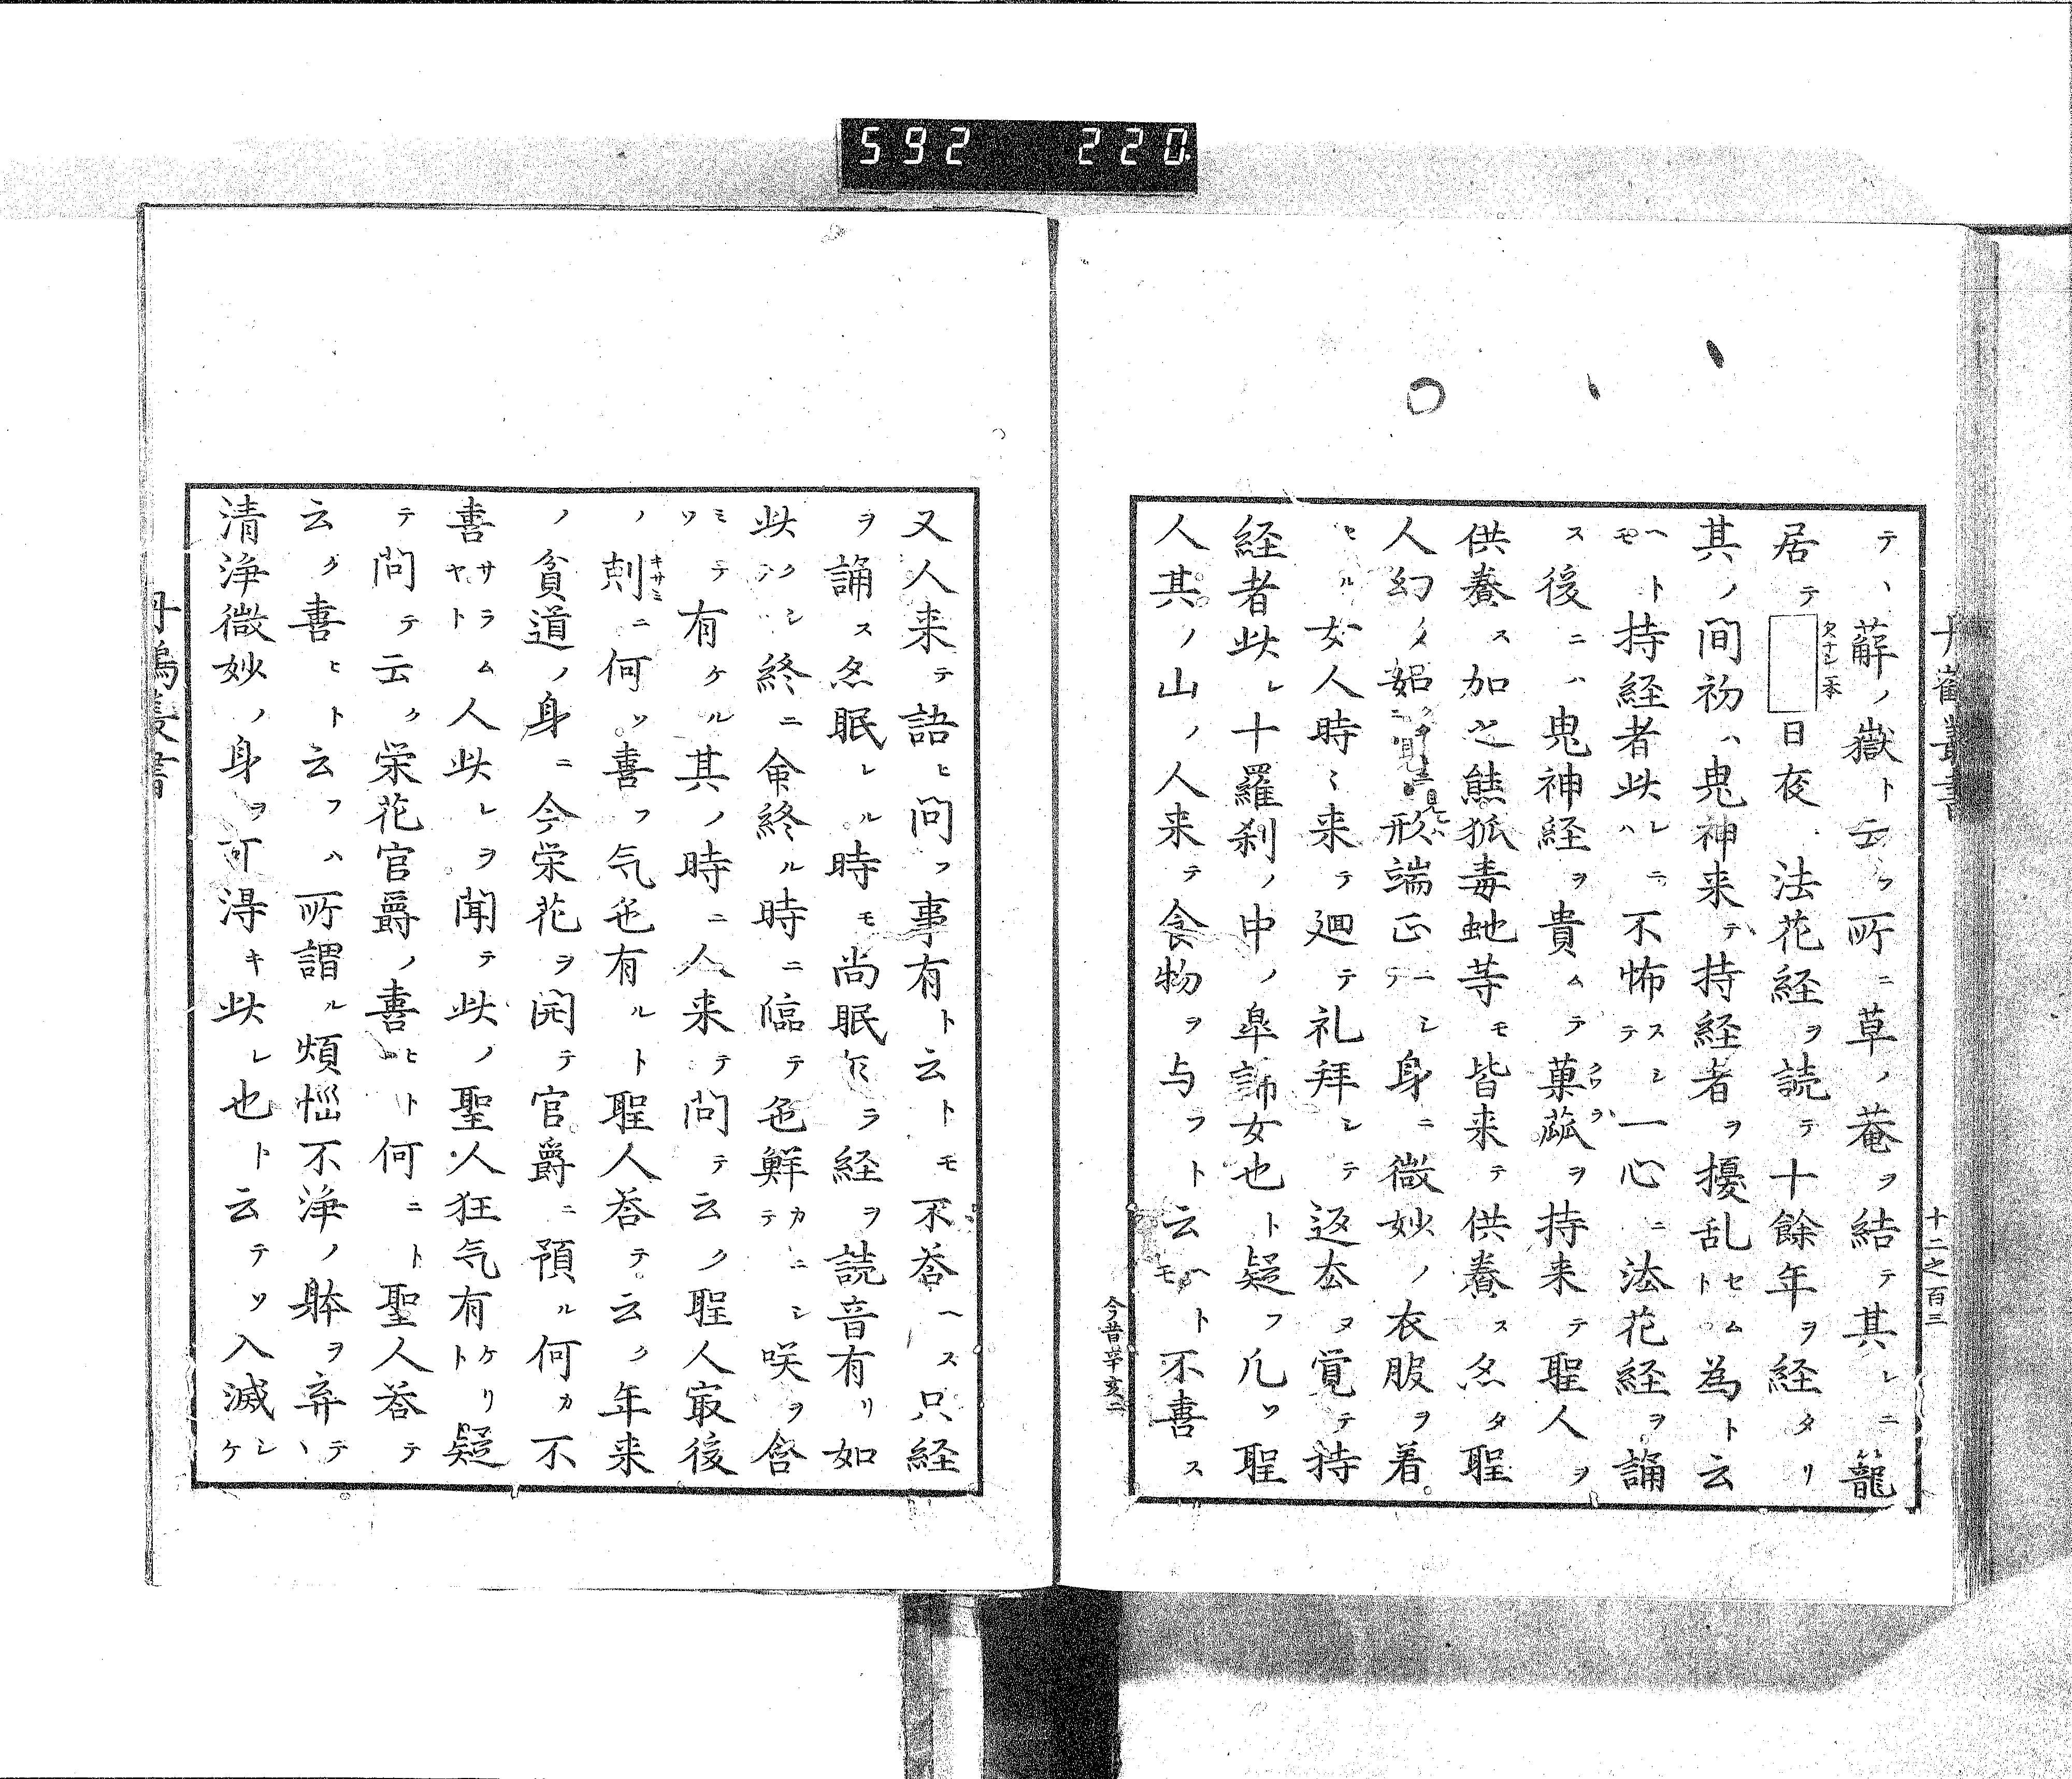 592 220
十二之百三
テ、薜ノ嶽ト云フ所ニ草ノ菴ヲ結テ其レニ籠
居テ
日夜法花経ヲ読テ十餘年ヲ経タリ
其ノ間初ハ鬼神来テ持経者ヲ擾乱セムト為ト云
ヘトモ持経者此レハニ不怖スシテ一心ニ法花経ヲ誦
ス後ニハ鬼神経ヲ貴ムテ菓蓏ヲ持来テ聖人ヲ
クワラ
供養ス加之熊狐毒虵等モ皆来テ供養ス亦タ聖
人幻ノメ
形端正ニシテ身ニ微妙ノ衣服ヲ着
セル女人時ミ来テ廻テ礼拜シテ返去ヌ覚テ持
経者此レ十羅刹ノ中ノ皐諦女也ト疑フ凡ソ聖
人其ノ山ノ人来テ食物ヲ与フト云ヘトモ不喜ス
今昔辛亥二
又人来テ語ヒ問フ事有ト云トモ不荅ヘス只経
ヲ誦ス亦眠レル時モ尚眠ラ経ヲ読音有リ如
此クシテ終ニ命終ル時ニ臨テ色鮮カニシテ咲ヲ含
ミテソ有ケル其ノ時ニ人来テ問テ云ク聖人最後
ノ剋ニ何ソ喜フ気色有ルト聖人荅テ云ク年来
キサミ
ノ貧道ノ身ニ今栄花ヲ開テ官爵ニ預ル何カ不
喜サラムヤト人此レヲ聞テ此ノ聖人狂気有ケリト疑
テ問テ云ク栄花官爵ノ喜ヒト何ニト聖人荅テ
云ク喜ヒト云フハ所謂ル煩悩不浄ノ躰ヲ弃テ、
清浄微妙ノ身ヲ可得キ此レ也ト云テソ入滅シケ